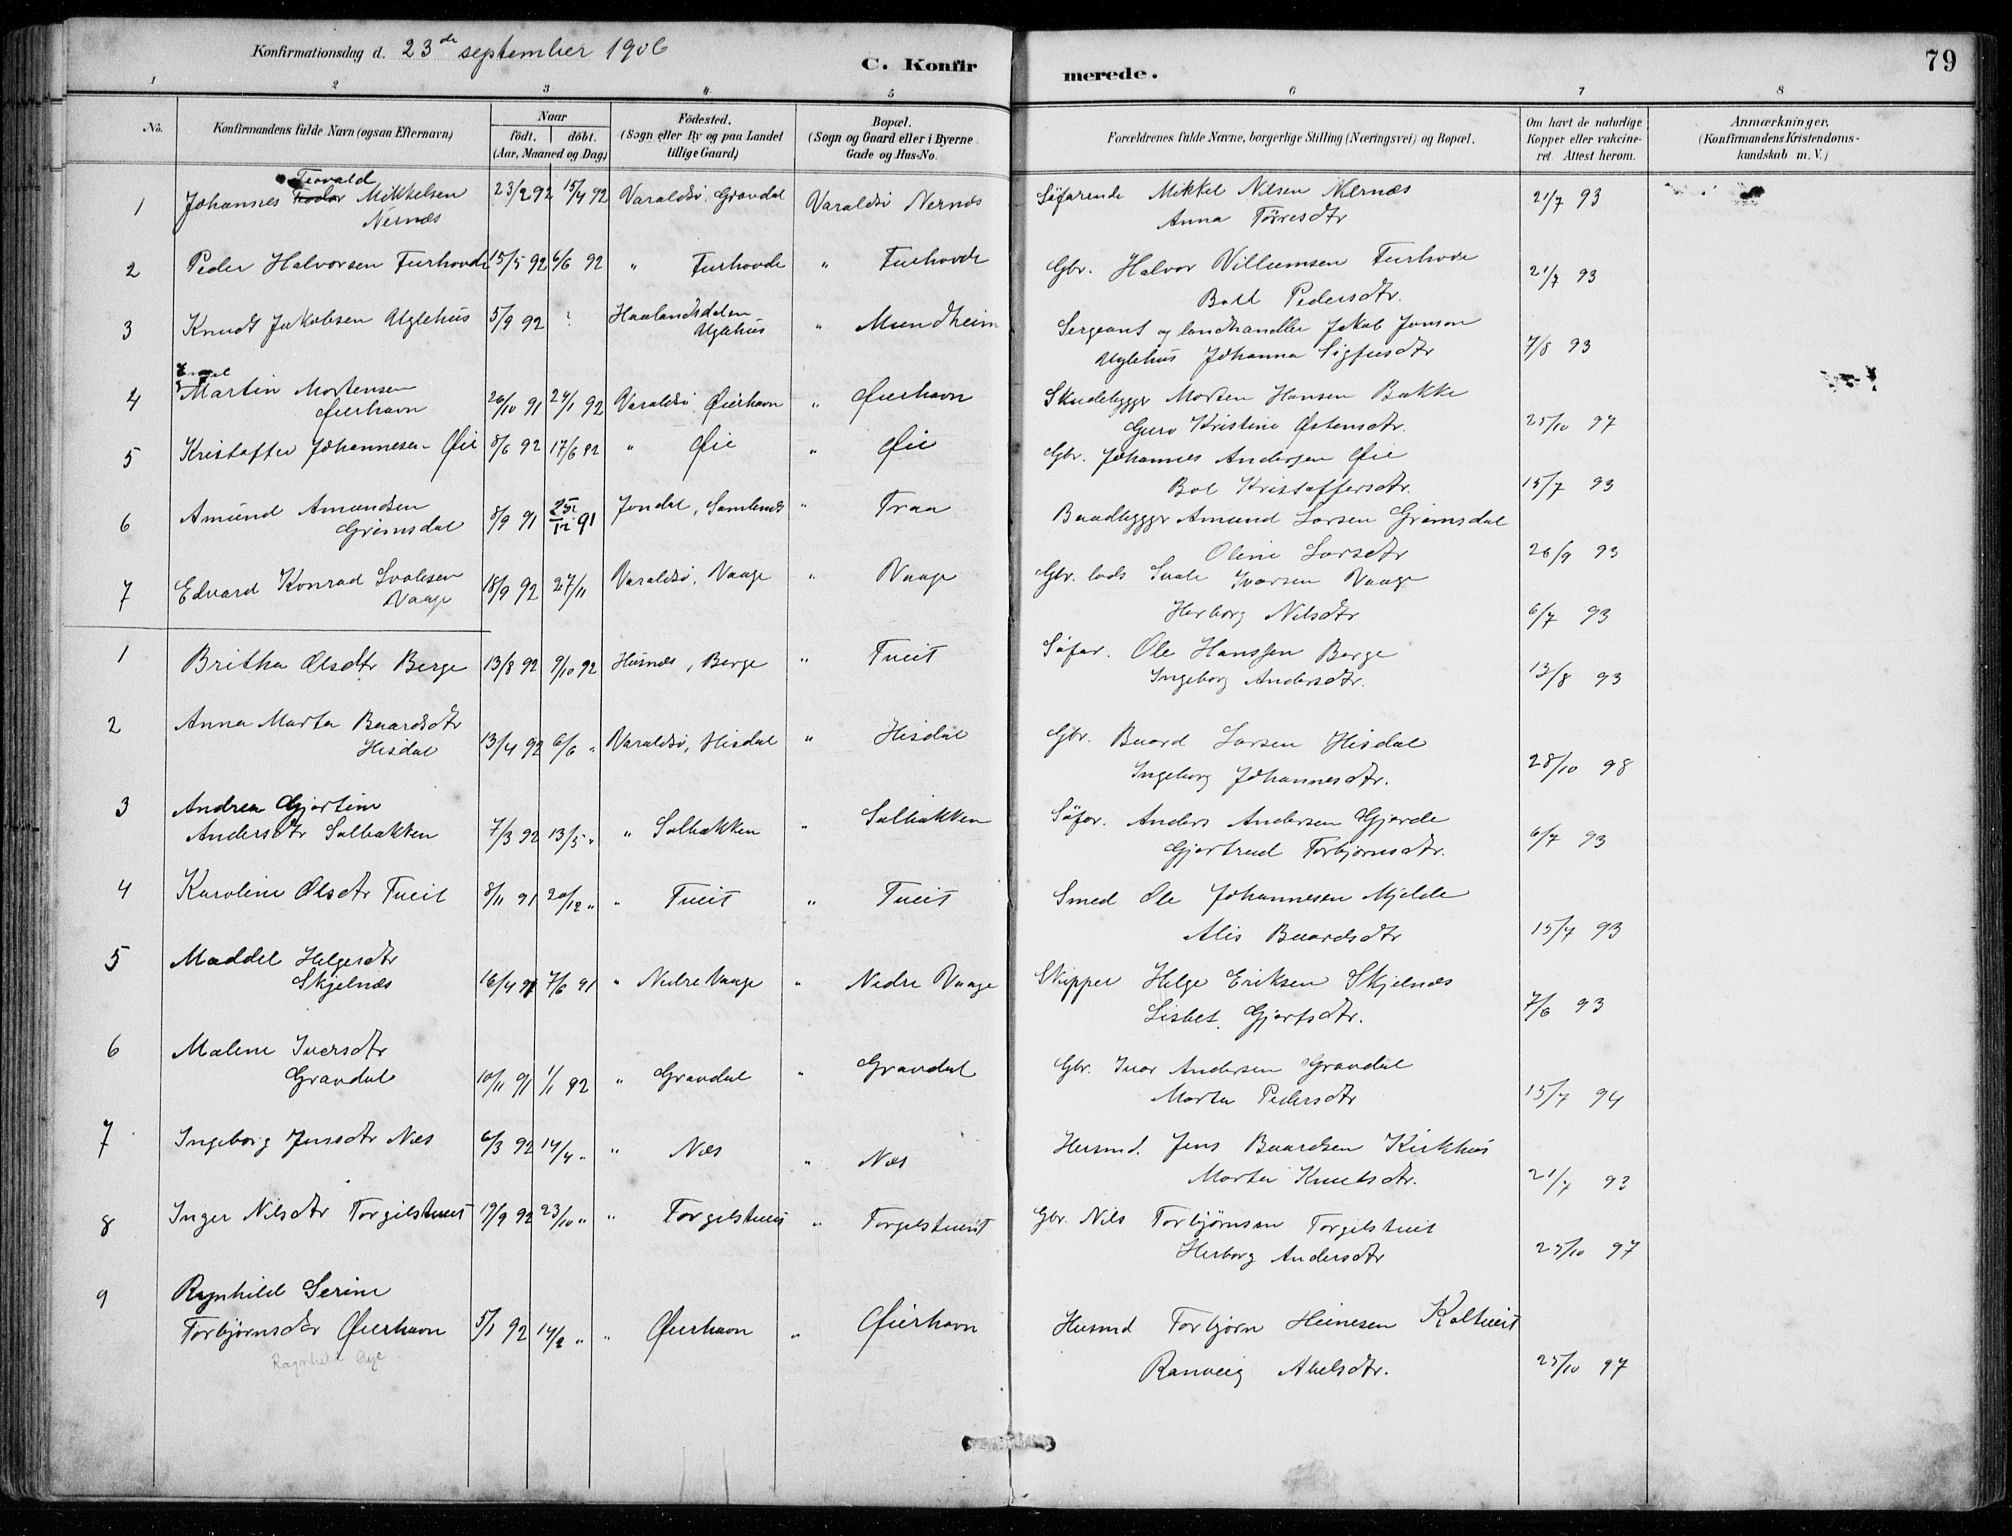 Konfirmationsdag d. 23de september 1906
C. Konfir
merede.
79
1 2 3 4 5 6 7 8
No.
Konfirmandens fulde Navn (ogsaa Efternavn)
Naar
födt. döbt.
(Aar, Maaned og Dag)
Födested.
(Sogn eller By og paa Landet
tillige Gaard)
Bopæl.
(Sogn og Gaard eller i Byerne
Gade og Hus-No.
Forældrenes fulde Navne, borgerlige Stilling (Næringsvei) og Bopæl.
Om havt de naturlige
Kopper eller vakcine-
ret. Attest herom.
Anmærkninger.
(Konfirmandens Kristendoms-
kundskab m. V.)
Teovald
1 Johannes Mikkelsen 23/2 92 15/4 92 Varaldsö, Gravdal Varaldsö Nernæs Söfarende Mikkel Nilsen Nernæs 21/7 93
Nernæs Anna Törresdtr
2 Peder Halvorsen Furhovde 15/5 92 6/6 92 " Furhovde " Furhovde Gbr. Halvor Villumsen Furhovde 21/7 93
Pedersdtr.
3 Knudt Jakobsen Uglehus 5/9 92 ? Haalandsdalen " Mundheim Sergeant og landhandler Jakob Jonson
Uglehus Uglehus Johanna Sigfusdtr 7/8 93
4 Martin Mortensen 26/10 91 24/1 92 Varaldsö, Øierhavn " Øierhavn Skudebygger Morten Hansen Bakke
Øierhavn Guro Kristine Østensdtr. 25/10 97
5 Kristoffer Johannesen Øie 8/6 92 17/6 92 " Øie " Øie Gbr. Johannes Andersen Øie
Bol Kristoffersdtr. 15/7 93
6 Amund Amundsen 8/9 91 91 Jondal, " Traa Baadbygger Amund Larsen Grimsdal
Grimsdal Oline Larsdtr 26/9 93
7 Edvard Konrad Svalesen 18/9 92 27/11 Varaldsö, Vaage " Vaage Gbr. lods Svale Ivarsen Vaage
Vaage Herborg Nilsdtr 6/7 93
1 Britha Olsdtr Berge 13/8 92 9/10 92 Husnæs, Berge " Tveit Söfar. Ole Hanssen Berge
Ingeborg Andersdtr. 13/8 93
2 Anna Marta Baardsdtr
Hisdal 13/4 92 6/6 " Varaldsö, Hisdal " Hisdal Gbr. Baard Larsen Hisdal
Ingeborg Johannesdtr. 28/10 98
3 Andrea Gjertine
Andersdtr Solbakken 7/3 92 13/5 " " Solbakken " Solbakken Söfar. Anders Andersen Gjerde
Gjertrud Torbjörnsdtr. 6/7 93
4 Karoline Olsdtr Tveit 8/11 91 20/12 " " Tveit " Tveit Smed Ole Johannesen Mjelde
Alis Baardsdtr 15/7 93
5 Maddel Helgesdtr
Skjelnæs 16/4 91 7/6 91 " Nedre Vaage " Nedre Vaage Skipper Helge Eriksen Skjelnæs
Lisbet Gjertsdtr. 7/6 93
6 Malene Iversdtr
Gravdal 10/11 91 1/1 92 " Gravdal " Gravdal Gbr. Ivar Andersen Gravdal
Marta Pedersdtr 15/7 94
7 Ingeborg Jensdtr Næs 6/3 92 14/4 " " Næs " Næs Husmd. Jens Baardsen Kirkhus
Marta Knutsdtr. 21/7 93
8 Inger Nilsdtr Torgilstveit 19/9 92 23/10 " " Torgilstveit " Torgilstveit Gbr. Nils Torbjörnsen Torgilstveit
Herborg Andersdtr 25/10 97
9 Ragnhild Serine
Torbjørnsdtr Øierhavn 5/1 92 14/2 " " Øierhavn " Øierhavn Husmd Torbjørn Heinesen Koltveit
Ragnhild Øye Ranveig Abelsdtr. 25/10 97